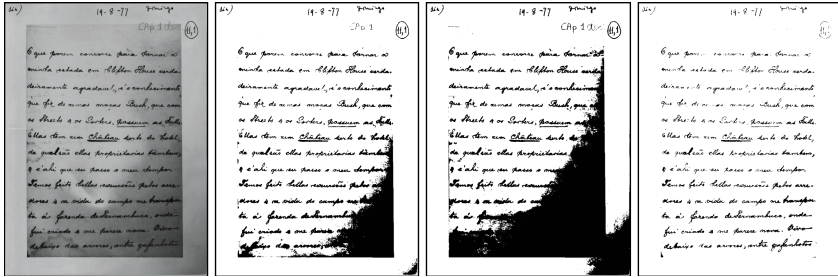 19-8-77 Domingo
CAp 1
11,1
O que porem concorre para tornar a
minha estada em Clifton House verda-
deiramente agradavel, é o conhecimento
que fiz de umas moças Bush, que com
os e os Porters, possuem as Falls.
Ellas tem um Château perto do hotel,
do qual são ellas proprietarias tambem,
e é ahi que eu passo o meu tempo.
Temos feito bellas excursões pelos arre-
dores e a vida do campo me transpor
ta á fazenda de Pernambuco, onde
fui criado e me parece nova. Vivo
debaixo das arvores, entre gafanhotos
19-8-77 Domingo
CAp 1
11,1
O que porem concorre para tornar a
minha estada em Clifton House verda-
deiramente agradavel, é o conhecimento
que fiz de umas moças Bush, que com
os e os Porters, possuem as Falls.
Ellas tem um Château perto do hotel,
do qual são ellas proprietarias tambem,
e é ahi que eu passo o meu tempo.
Temos feito bellas excursões pelos
dores e a vida do campo me
ta á fazenda de Pernambuco
fui criado e me parece
debaixo das arvores,
19-8-77 Domingo
CAp 1
11,1
O que porem concorre para tornar a
minha estada em Clifton House verda-
deiramente agradavel, é o conhecimento
que fiz de umas moças Bush, que
os e os Porters, possuem as
Ellas tem um Château perto do
do qual são ellas proprietarias
e é ahi que eu passo o meu
Temos feito bellas excursões
dores e a vida do campo
ta á fazenda de
fui criado e me
debaixo das
19-8-77 Domingo
11,1
O que porem concorre para tornar a
minha estada em Clifton House verda-
deiramente agradavel, é o conhecimento
que fiz de umas moças Bush, que com
os e os Porters, possuem as Falls.
Ellas tem um Château perto do hotel,
do qual são ellas proprietarias tambem,
e é ahi que eu passo o meu tempo.
Temos feito bellas excursões pelos arre-
dores e a vida do campo me transpor
ta á fazenda de Pernambuco, onde
fui criado e me parece nova. Vivo
debaixo das arvores, entre gafanhotos